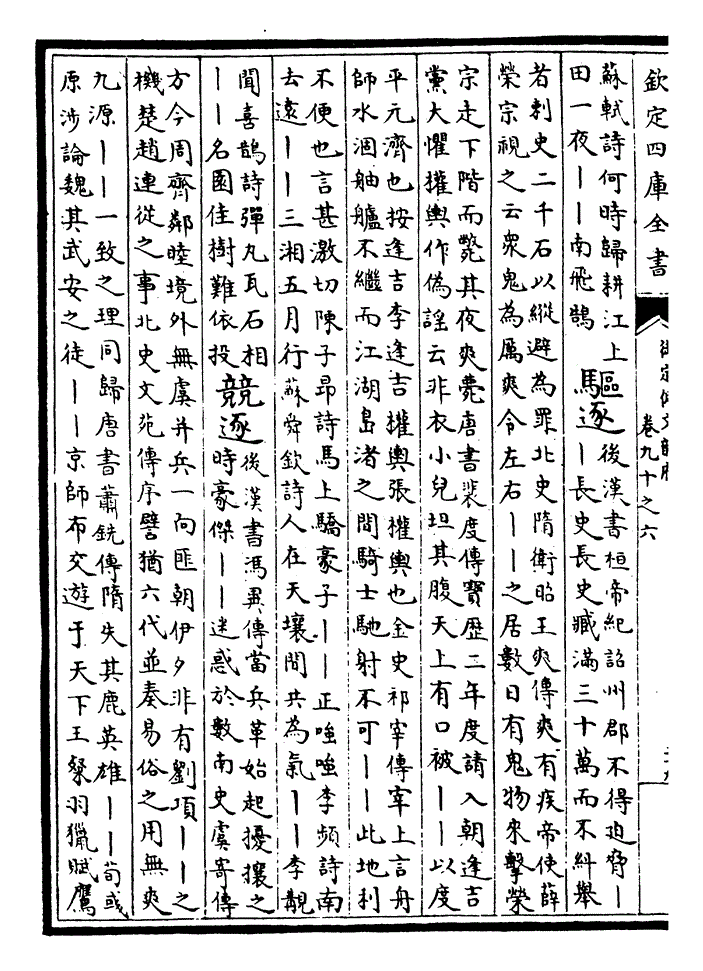 欽定四庫全書
御定佩文韻府
卷九十之六
蘇軾詩何時歸耕江上
田一夜丨丨南飛鵠
驅逐
後漢書桓帝紀詔州郡不得迫脅丨
丨長史長史臧滿三十萬而不糾舉
者刺史二千石以縱避為罪北史隋衛昭王爽傳爽有疾帝使薛
榮宗視之云衆鬼為厲爽令左右丨丨之居數日有鬼物來擊榮
宗走下階而斃其夜爽薨唐書裴度傳寶歴二年度請入朝逢吉
黨大懼權輿作偽謡云非衣小兒坦其腹天上有口被丨丨以度
平元濟也按逢吉李逢吉權輿張權輿也金史祁宰傳宰上言舟
師水涸舳艫不繼而江湖島渚之間騎士馳射不可丨丨此地利
不便也言甚激切陳子昂詩馬上驕豪子丨丨正嗤嗤李頻詩南
去逺丨丨三湘五月行蘇舜欽詩人在天壤間共為氣丨丨李覯
聞喜鵲詩彈丸瓦石相
丨丨名園佳樹難依投
競逐
後漢書馮異傳當兵革始起擾攘之
時豪傑丨丨迷惑於數南史虞寄傳
方今周齊鄰睦境外無虞并兵一向匪朝伊夕非有劉項丨丨之
機楚趙連從之事北史文苑傳序譬猶六代並奏易俗之用無爽
九源丨丨一致之理同歸唐書蕭銑傳隋失其鹿英雄丨丨荀或
原涉論魏其武安之徒丨丨京師布交遊于天下王粲羽獵賦鷹